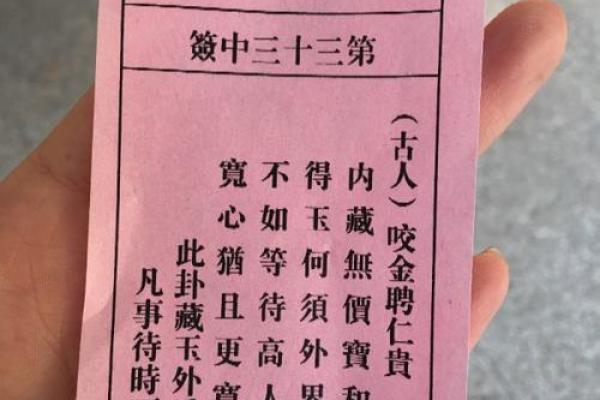 第三十三中簽
（古人）咬金聘仁貴
內藏無價寶和
得玉何須外界
不如等待高人
寬心猶且更寬
此卦藏玉外
凡事待時